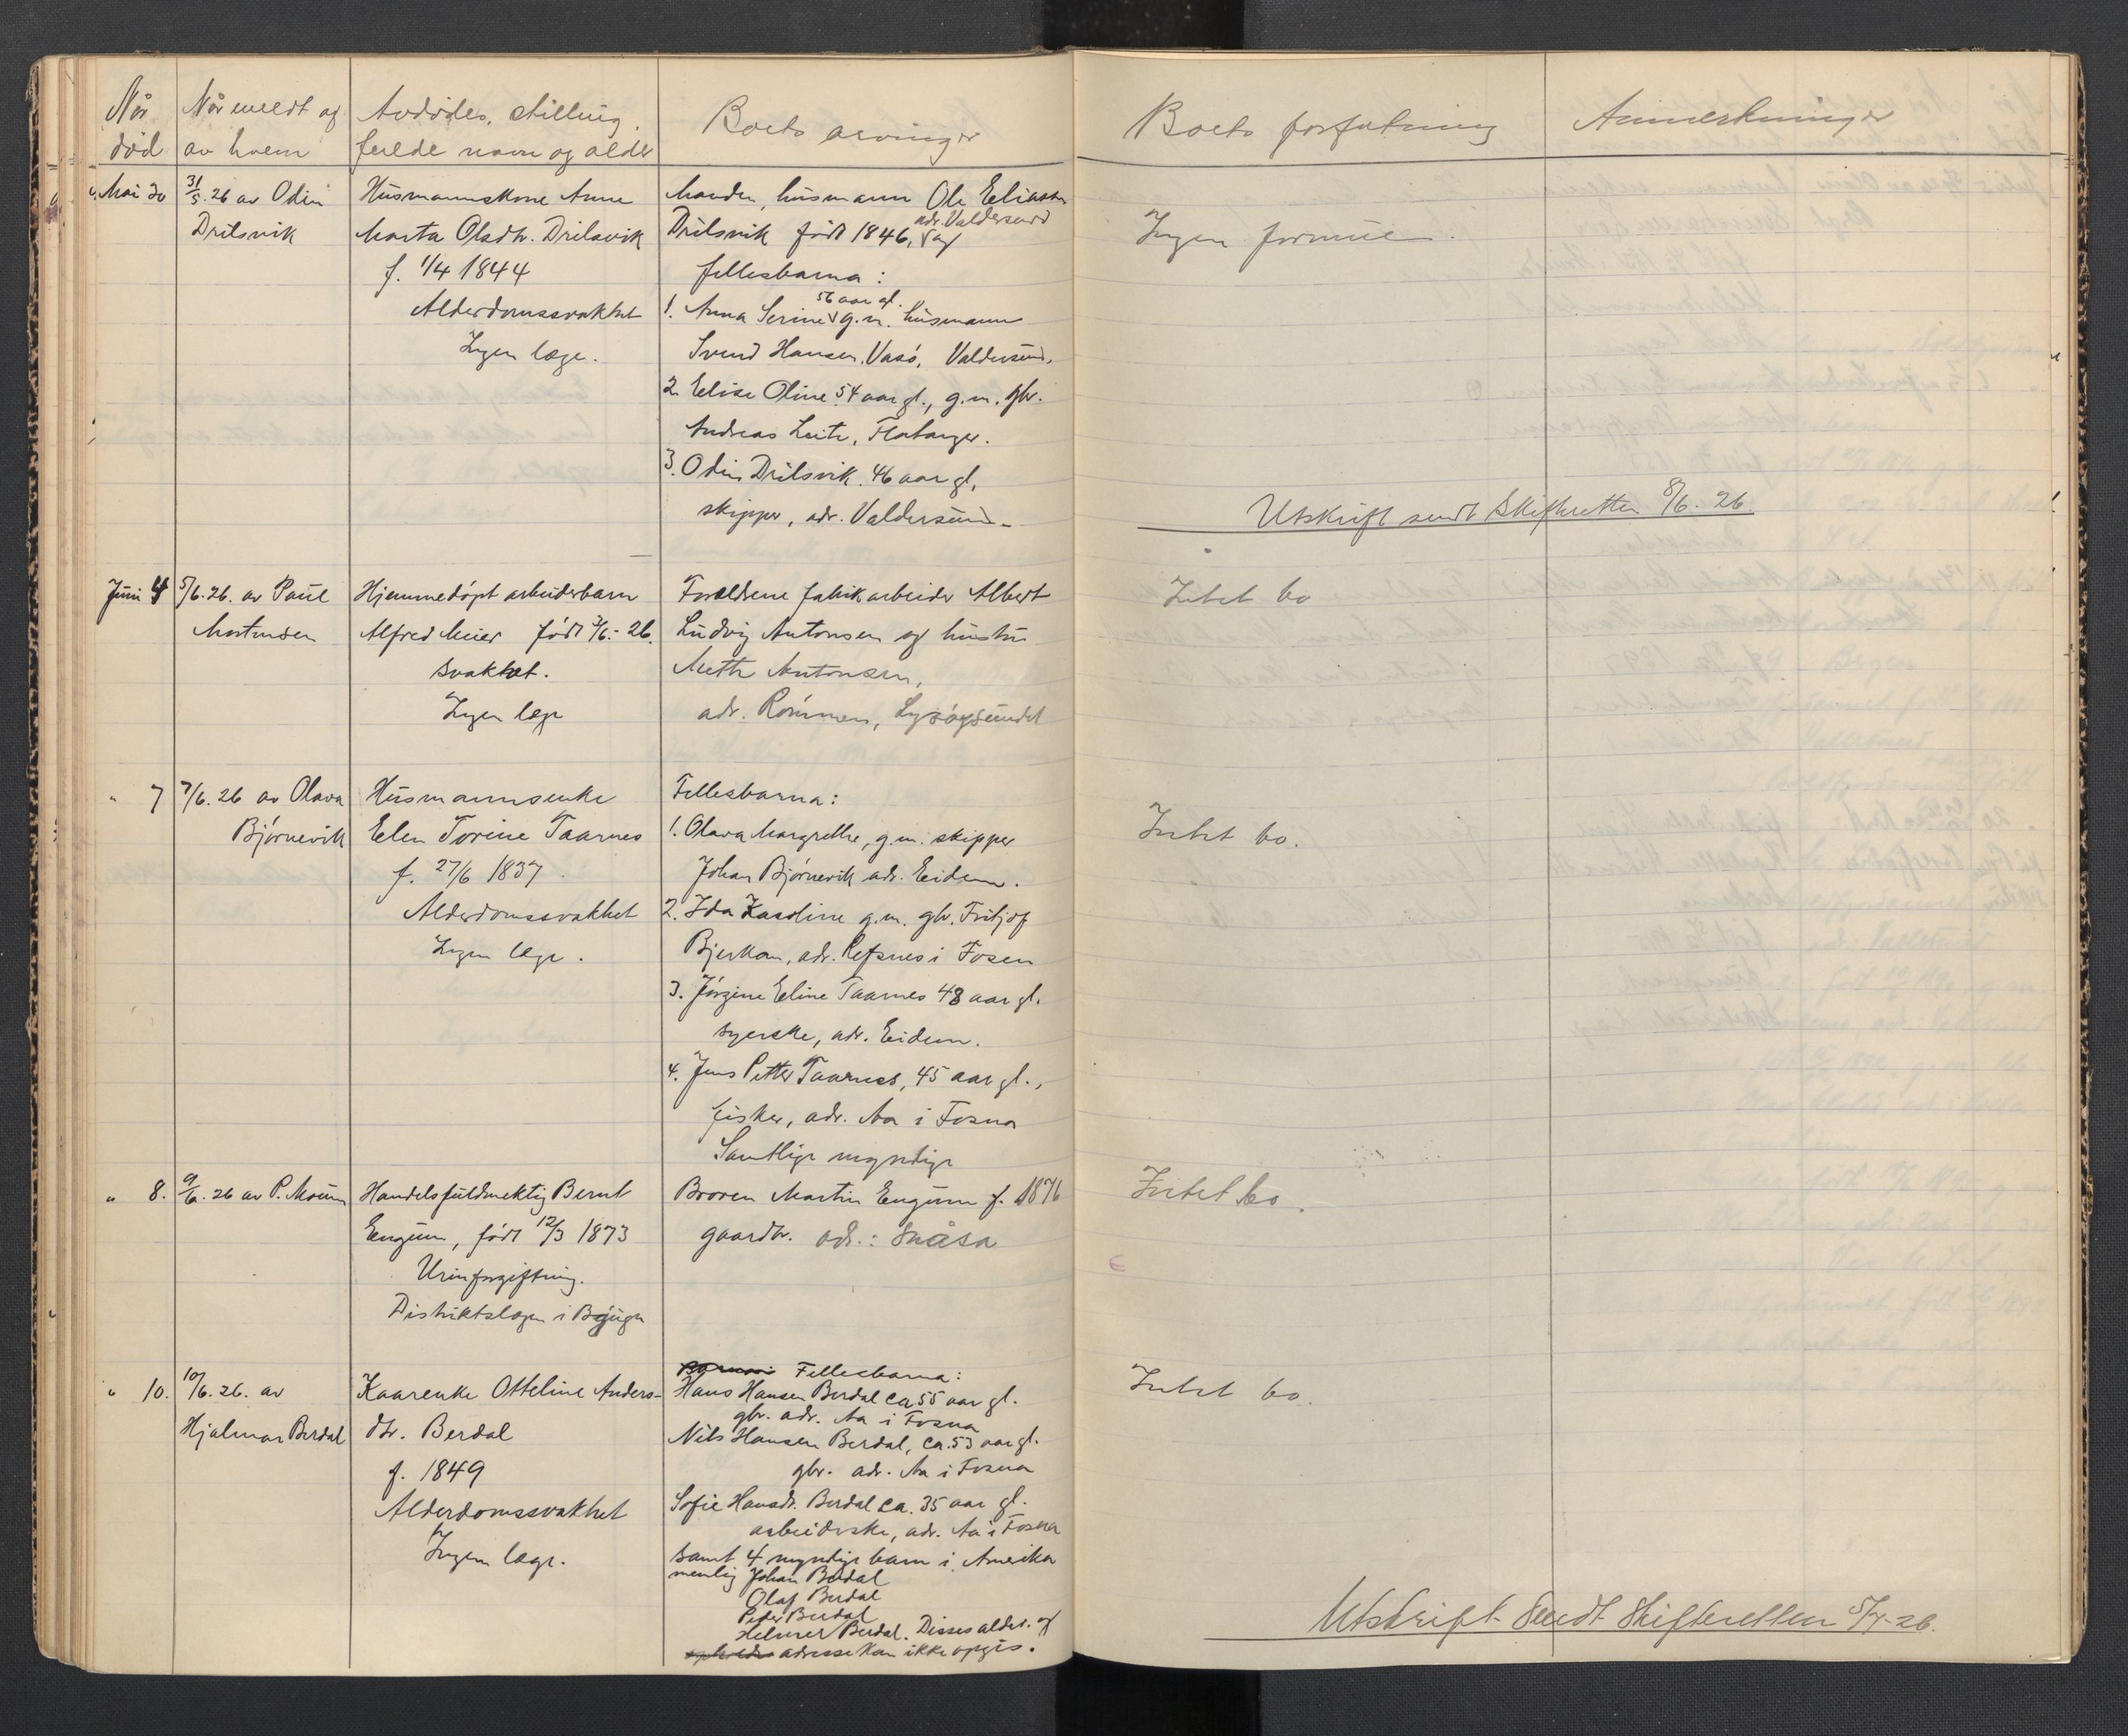 Når død
Når meldt og av hvem
Avdødes, stilling, fulde navn og alder
Boets arvinger
Boets forfatning
Anmerkninger
Mai 30
31/5.26 av Odin
Drilsvik
Husmannskone Anne
Marta Olsdtr. Drilsvik
f. 1/4 1844
Alderdomssvakhet
Ingen læge.
Manden, husmann Ole Eliassen
Drilsvik født 1846, adr. Valdersund og
fellesbarna:
1. Anna Serine 56 aar gl. g.m. husmann
Svend Hansen, Vasø, Valdersund.
2. Elise Oline 54 aar gl., g.m. gbr.
Andreas Leite, Flatanger.
3. Odin Drilsvik 46 aar gl,
skipper, adr. Valdersund.
Ingen formue.
Utskrift sendt Skifteretten 8/6. 26.
Juni 4
5/6. 26. av Paul
Mortensen
Hjemmedøpt arbeiderbarn
Alfred Meier født 3/6.- 26.
svakhet.
Ingen læge
Forældrene fabrikarbeider Albert
Ludvig Antonsen og hustru
Mette Antonsen,
adr. Rømmen, Lysøysundet
Intet bo
" 7
7/6. 26 av Olava
Bjørnevik
Husmannsenke
Elen Torine Taarnes
f. 27/6 1837.
Alderdomssvakhet
Ingen læge.
Fellesbarna:
1. Olava Margrethe, g.m. skipper
Johan Bjørnevik adr. Eidem.
2. Ida Karoline g.m. gbr. Fritjof
Bjerkan, adr. Refsnes i Fosen
3. Jørgine Eline Taarnes 48 aar gl.
syerske, adr. Eidem.
4. Jens Petter Taarnes, 45 aar gl.,
fisker, adr. Aa i Fosna
Samtlige myndige
Intet bo.
" 8.
9/6. 26 av P. Moum
Handelsfuldmektig Bernt
Engum, født 12/3 1873
Urinforgiftning.
Distriktslægen i Bjugn
Broren Martin Engum f. 1876
gaardbr. adr.: Snåsa
Intet bo.
" 10.
10/6. 26. av
Hjalmar Berdal
Kaarenke Otteline Anders-
dtr. Berdal
f. 1849
Alderdomssvakhet
Ingen læge.
Fellesbarna:
Hans Hansen Berdal ca 55 aar gl.
gbr. adr. Aa i Fosna
Nils Hansen Berdal, ca. 53 aar gl.
gbr. adr. Aa i Fosna
Sofie Hansdr. Berdal ca. 35 aar gl.
arbeiderske, adr. Aa i Fosna
samt 4 myndige barn i Amerika
nemlig Johan Berdal
Olaf Berdal
Peder Berdal
Helmer Berdal. Disses alder. og
adresse kan ikke opgis.
Intet bo.
Utskrift sendt Skifteretten 5/7-26.